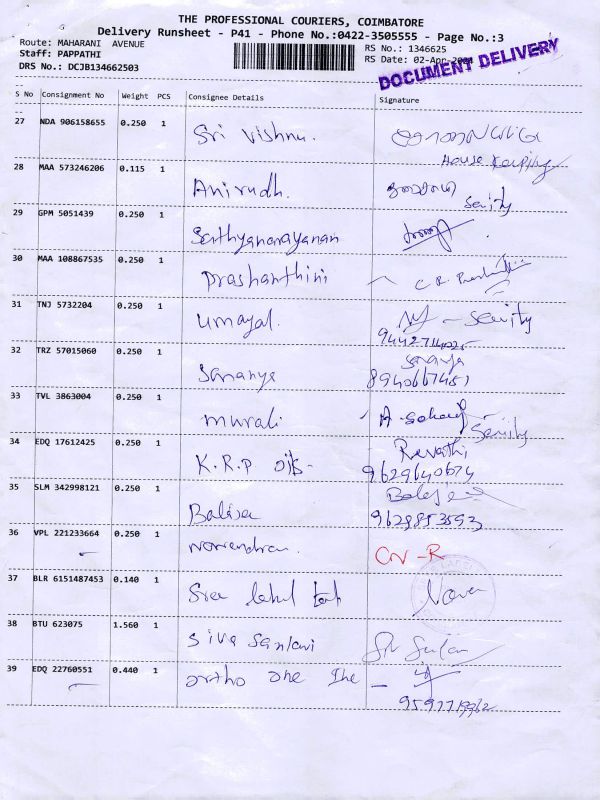 THE PROFESSIONAL COURIERS, COIMBATORE
Delivery Runsheet - P41 - Phone No.:0422-3505555 - Page No.:3
Route: MAHARANI AVENUE
Staff: PAPPATHI
DRS No.: DCJB134662503
RS No.: 1346625
RS Date: 02-Apr-2024
DOCUMENT DELIVERY
S No Consignment No Weight PCS Consignee Details Signature
27 NDA 906158655 0.250 1 Sri Vishnu.
House Keeping
28 MAA 573246206 0.115 1 Anirudh.
29 GPM 5051439 0.250 1 Sathyanarayanan
30 MAA 108867535 0.250 1 Prashanthini
31 TNJ 5732204 0.250 1 Umayal.
32 TRZ 57015060 0.250 1 Saranya Saranya
8940667451
33 TVL 3863004 0.250 1 Murali
34 EDQ 17612425 0.250 1 K.R.P oils - Revathi
9629640674
35 SLM 342998121 0.250 1
9629853593
36 VPL 221233664 0.250 1 CN-R
37 BLR 6151487453 0.140 1 Sree
38 BTU 623075 1.560 1 Siva
39 EDQ 22760551 0.440 1 ortho one